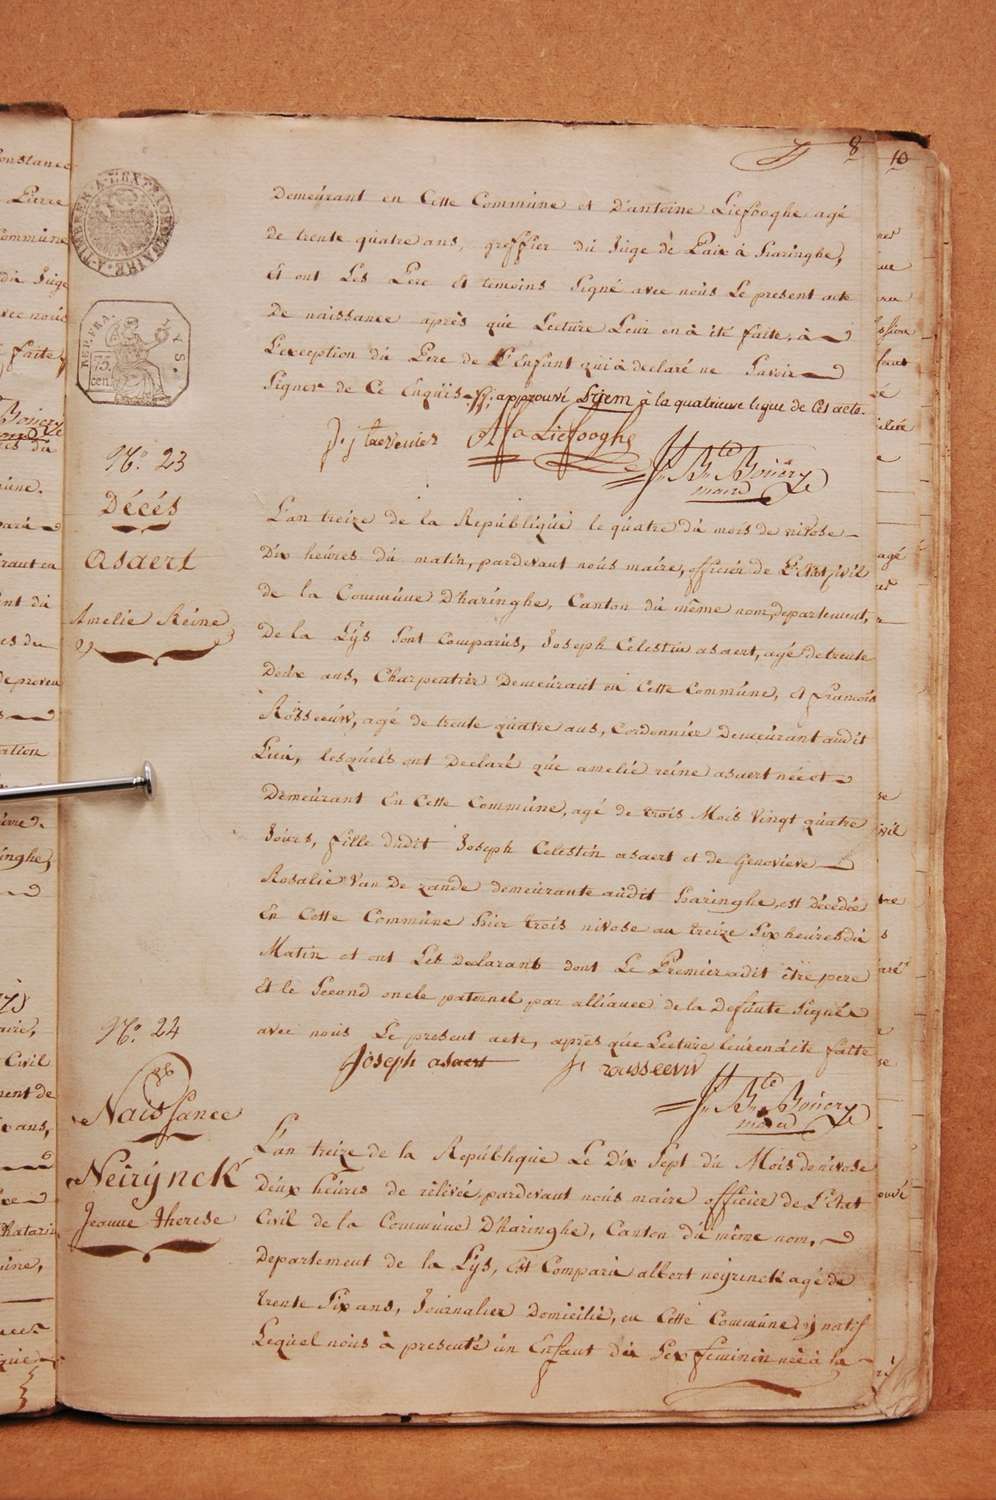 8
10
demeurant en Cette Commune et D'antoine Liefooghe agé
de trente quatre ans, greffier du Juge de Paix à haringhe,
Et ont Les Pere Et temoins Signé avec nous Le present acte
De naissance après que Lecture Leur en à été faite, à
L'exception du Pere de L'Enfant qui à declaré ne Savoir
Signer de Ce Enquis approuvé à la quatrieme ligne de Cet acte.
A Liefooghe
maire
No. 23
Décés
asaert
Amelie Reine
L'an treize de la République le quatre du mois de nivose
Dix heures du matin, pardevant nous maire, officier de L'Etat Civil
de la Commune D'haringhe, Canton du même nom, departement,
De la Lys Sont Comparus, Joseph Celestin asaert, agé de trente
Deux ans, Charpentier Demeurant en Cette Commune, et françois
Rösseeuw, agé de trente quatre ans, Cordonnier Demeurant audit
Lieu, lesquels ont Declaré que amelie reine asaert née et
Demeurant En Cette Commune, agé de trois Mois Vingt quatre
Jours, fille dudit Joseph Celestin asaert et de Genovieve
Rosalie Van De zande demeurante audit haringhe, est Décédée
En Cette Commune hier trois nivose an treize Six heures du
Matin et ont Les Declarants dont Le Premier adit être pere
Et le Second oncle paternel par alliance de la Defunte Signé
avec nous Le present acte, après que Lecture leur en à été faitte
Joseph asaert
rösseeuw
maire
No. 24
Naissance
Neirÿnck
Jeanne therese
L'an treize de la République Le Dix Sept du Mois de nivose
deux heures de rélévée, pardevant nous maire officier de L'Etat
Civil de la Commune D'haringhe, Canton du même nom,
Departement de la Lys, Est Comparu albert neyrinck agé de
trente Six ans, Journalier Domicilié, en Cette Commune y natif
Lequel nous à presenté un Enfant du Sex feminin née à la